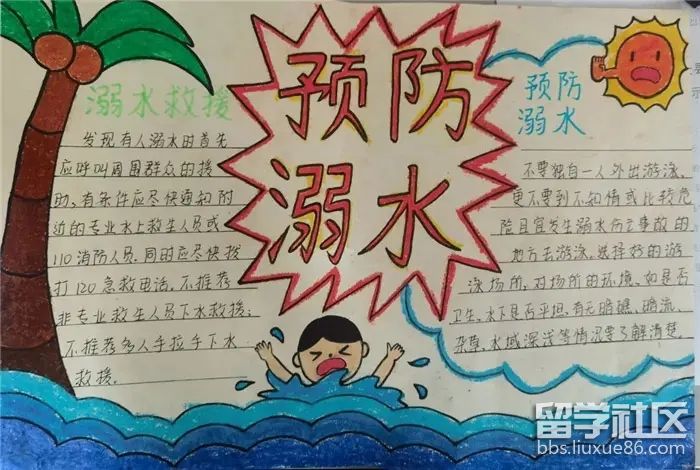 溺水救援
发现有人溺水时首先
应呼叫周围群众的援
助,有条件应尽快通知附
近的专业水上救生人员或
110消防人员.同时应尽快拨
打120急救电话,不推荐
非专业救生人员下水救援;
不推荐多人手拉手下水
救援。
预防
溺水
预防
溺水
不要独自一人外出游泳,
更不要到不知情或比较危
险且宜发生溺水伤亡事故的
地方去游泳.选择好的游
泳场所,对场所的环境,如是否
卫生,水下是否平坦,有无暗礁、暗流、
杂草,水域深浅等情况要了解清楚.
留学社区
bbs.liuxue86.com